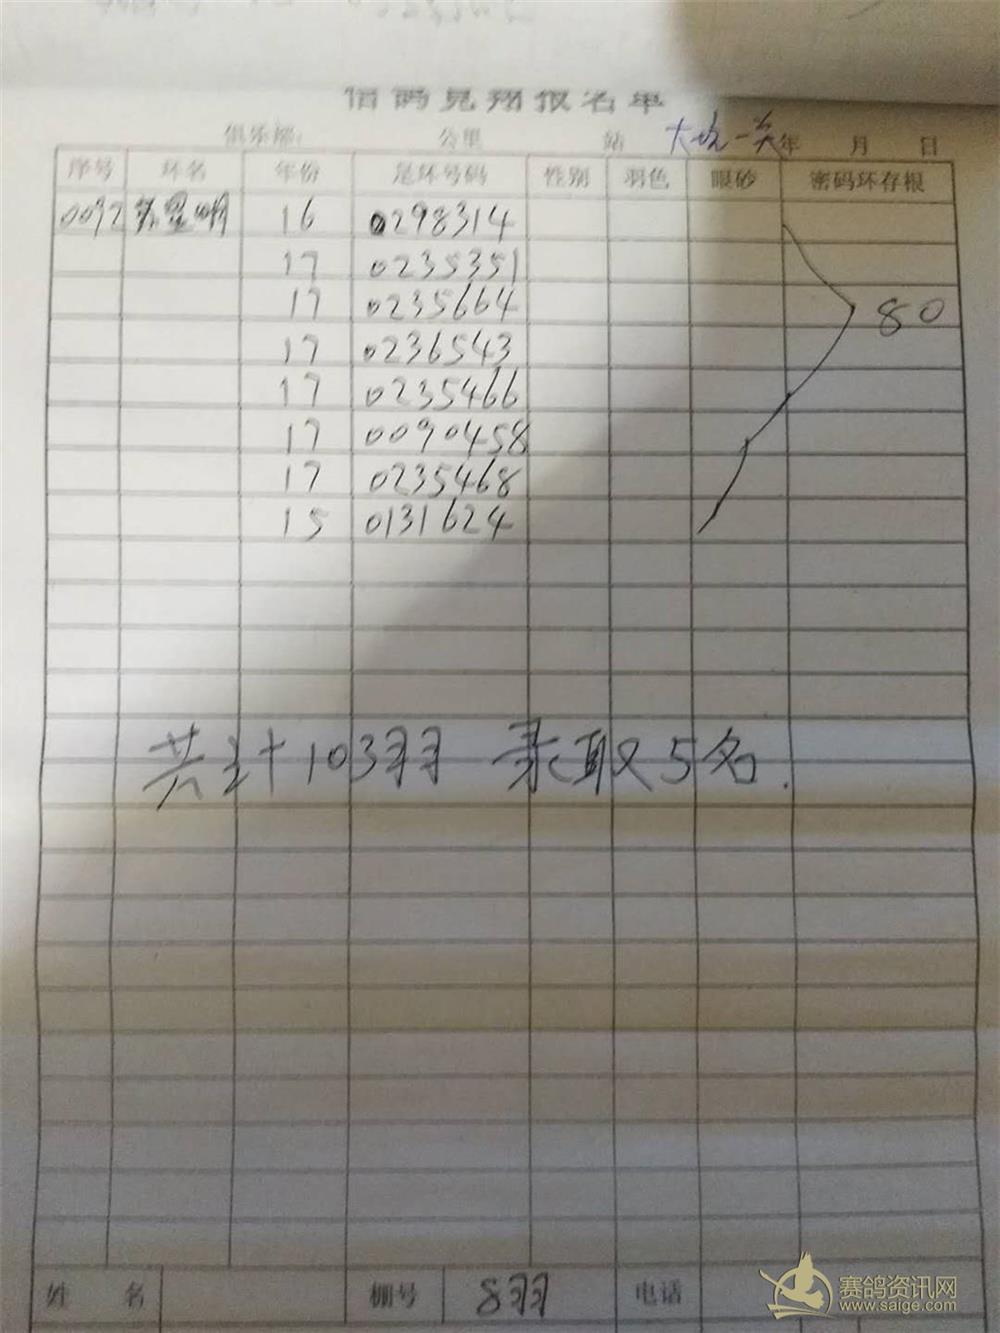 信鸽竞翔报名单
俱乐部: 公里 站 大坑一关 年 月 日
序号 环名 年份 足环号码 性别 羽色 眼砂 密码环存根
0092 苏星明 16 0298314
17 0235351
17 0235664 80
17 0236543
17 0235466
17 0090458
17 0235468
15 0131624
共计103羽 录取5名.
姓名 棚号 8羽 电话
赛鸽资讯网
www.saige.com